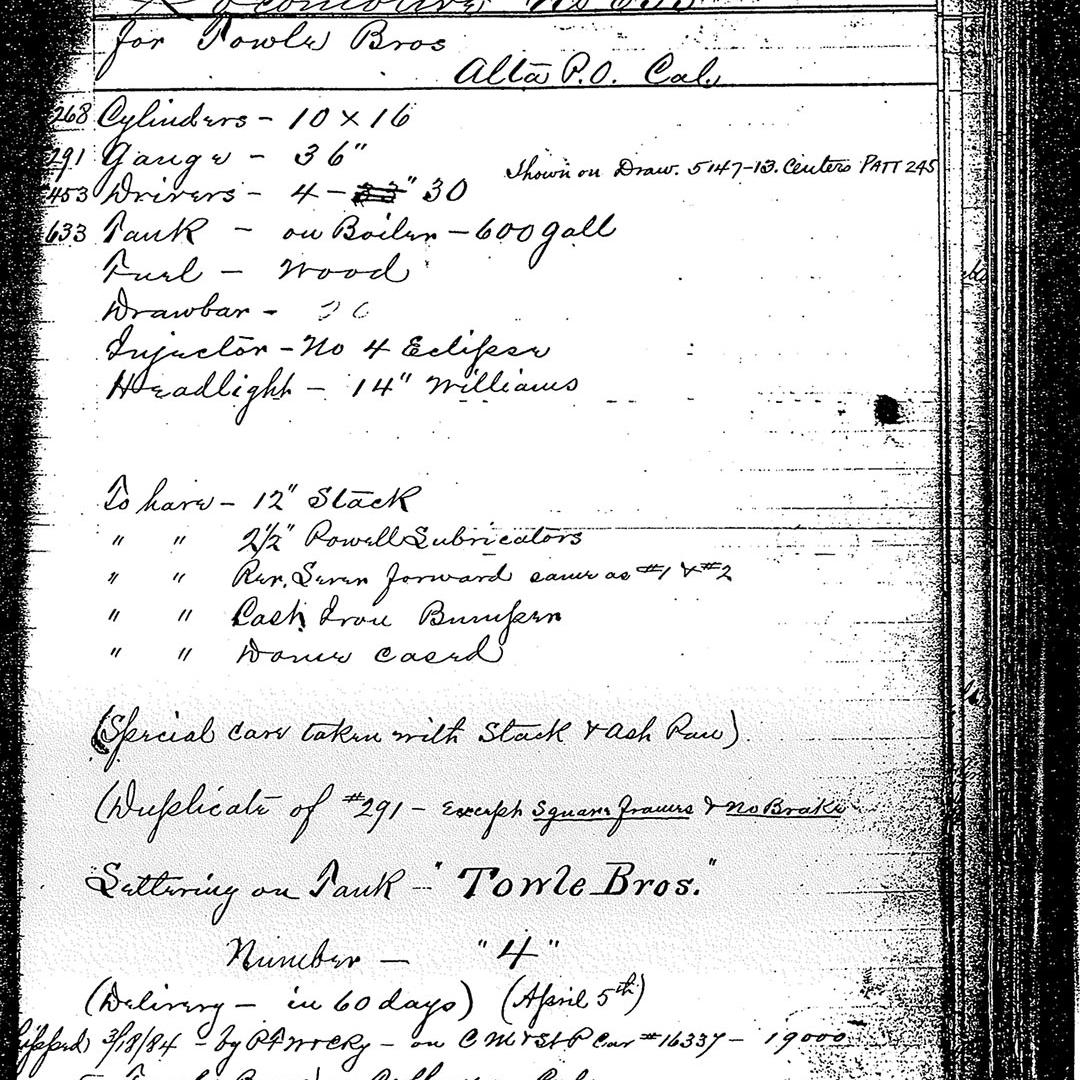 Locomotive No
for Towle Bros
Alta P.O. Cal.
268 Cylinders - 10 x 16
291 Gauge - 36"
Shown on Draw. 5147-13. Centers PATT 245
453 Drivers - 4 - 33" 30
633 Tank - on Boiler - 600 gall
Fuel - Wood
Drawbar -
Injector - No 4 Eclipse
Headlight - 14" Williams
To have - 12" Stack
" " 2½" Powell Lubricators
" " Rev. Lever forward same as #1 & #2
" " Cast Iron Bumper
" " Dome cased
(Special care taken with Stack & Ash Pan)
(Duplicate of #291 - except Square frames & No Brake
Lettering on Tank - "Towle Bros."
Number - "4"
(Delivery - in 60 days) (April 5th)
3/18/84 - by - on C M & St P Car #16337 - 19000